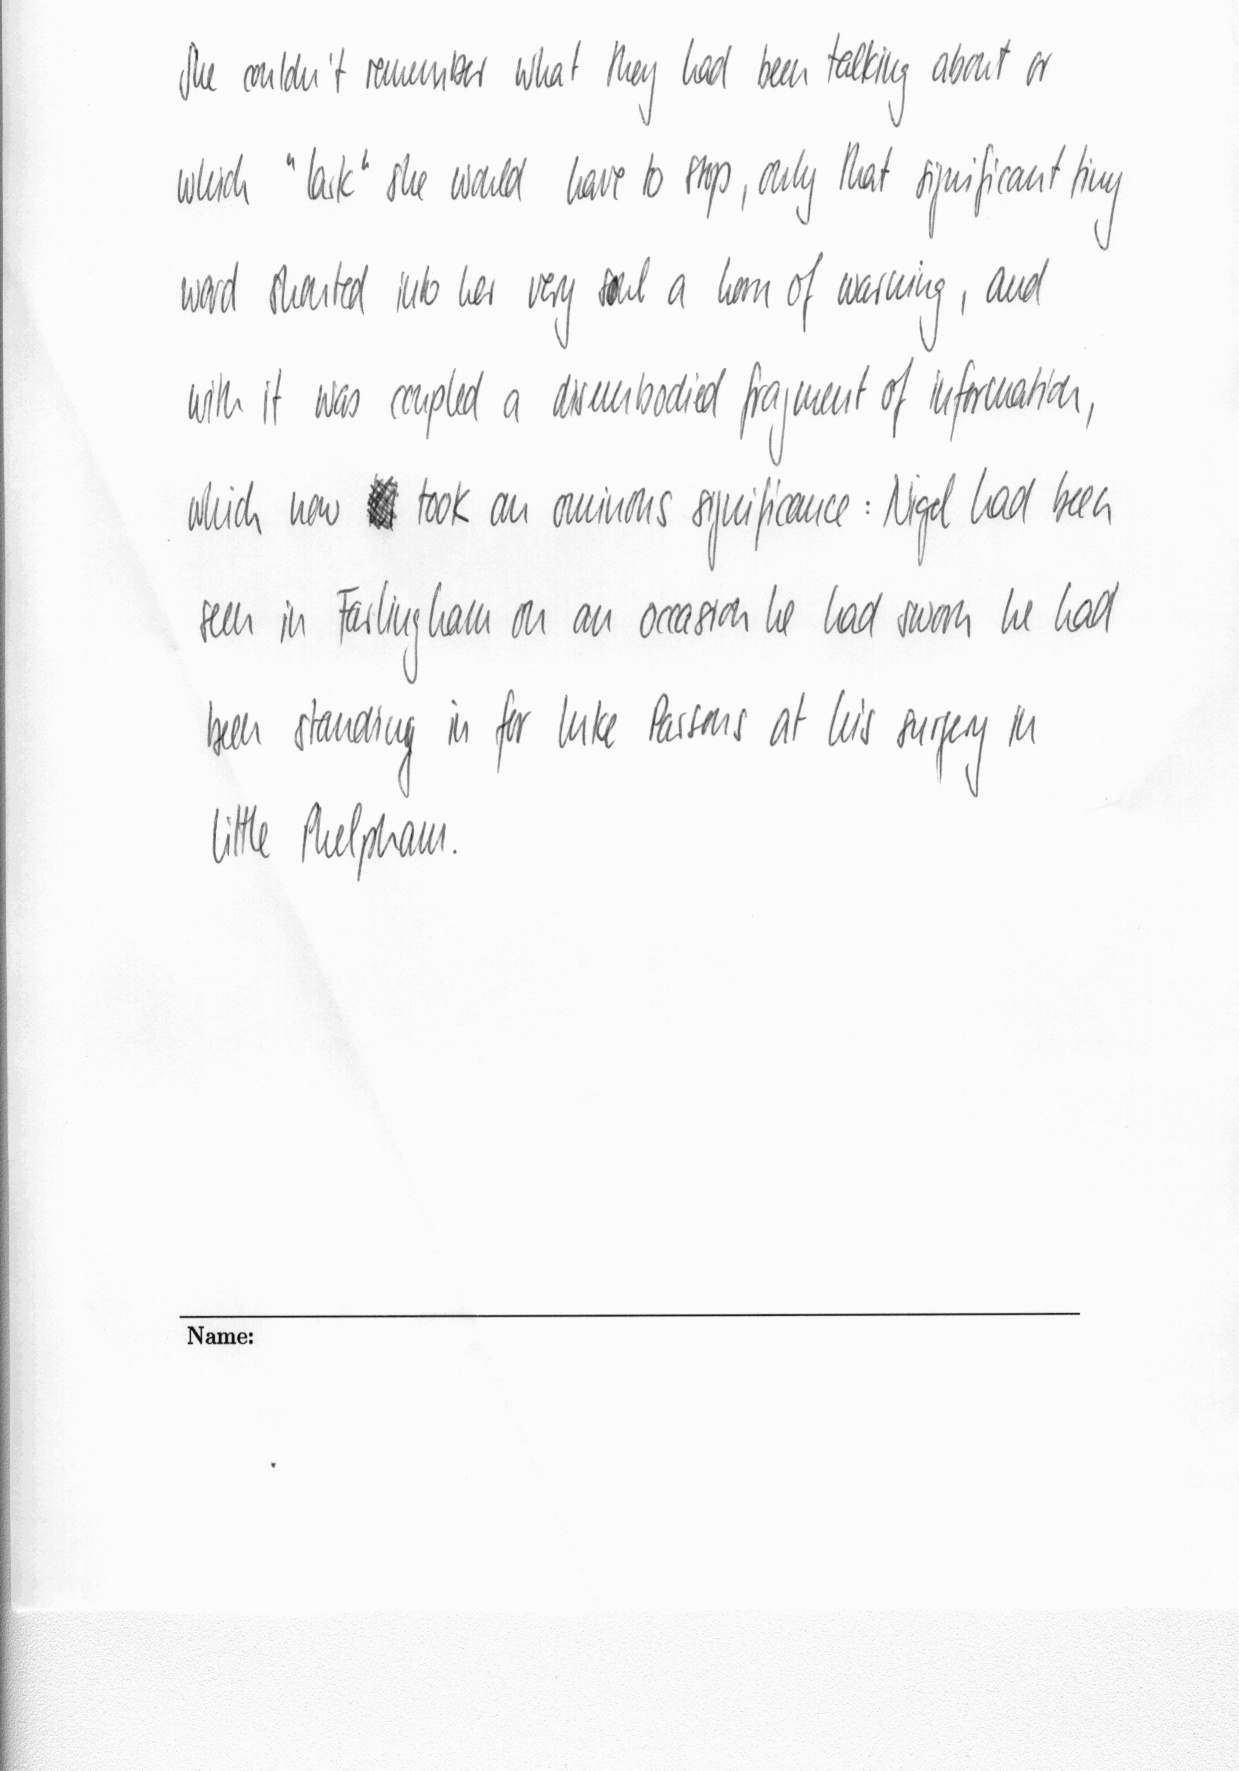 She couldn't remember what they had been talking about or
which "lark" she would have to stop, only that significant tiny
word shouted into her very soul a horn of warning, and
with it was coupled a disembodied fragment of information,
which now took an ominous significance: Nigel had been
seen in Farlingham on an occasion he had sworn he had
been standing in for Luke Parsons at his surgery in
Little Phelpham.
Name: